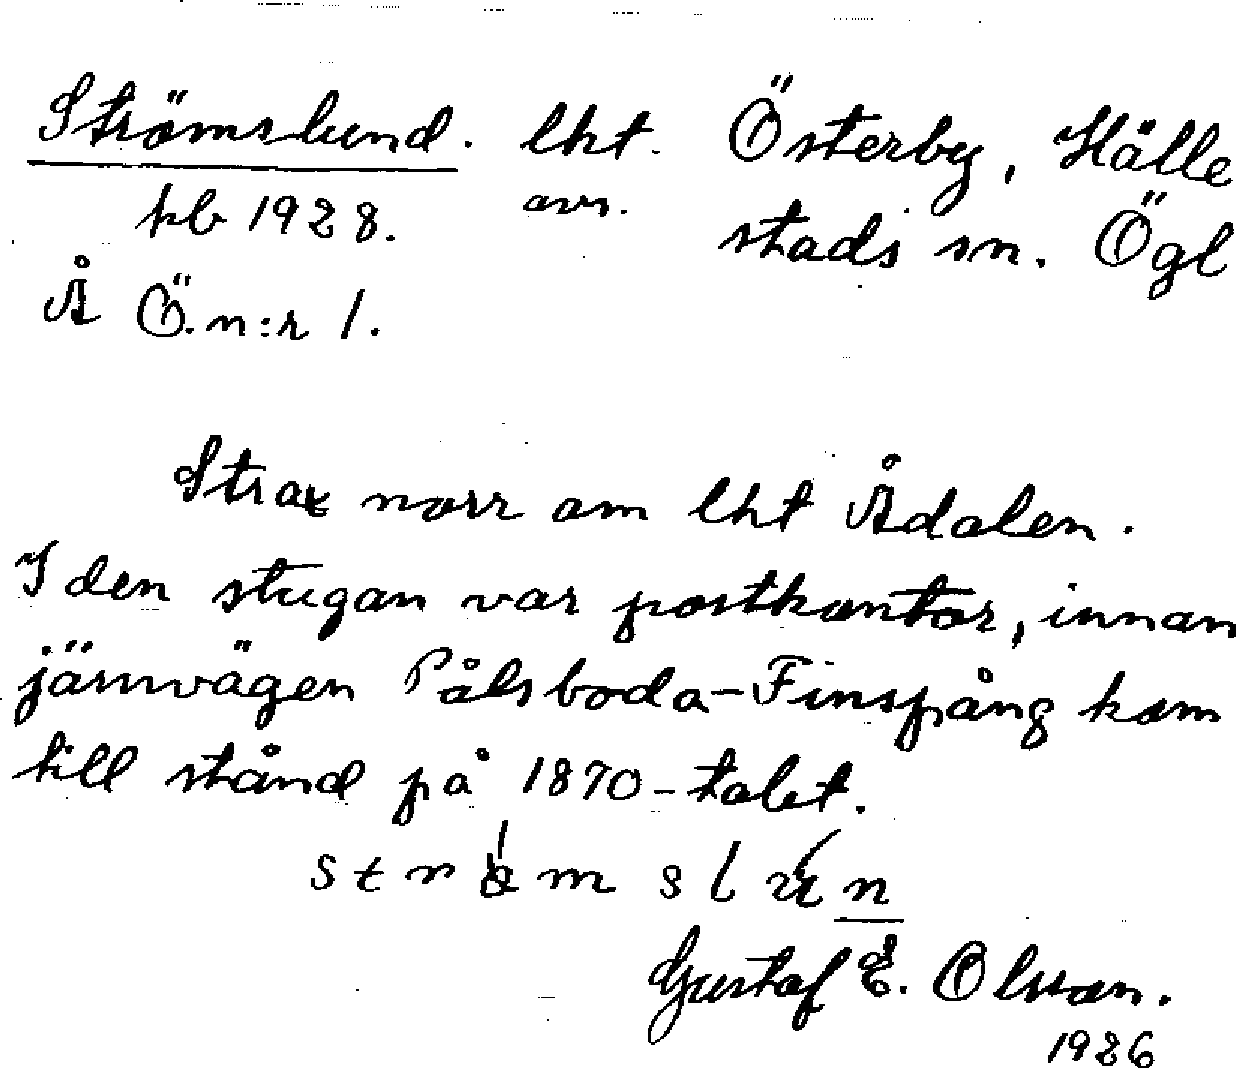 Strömslund. lht. Österby, Hälle
kb 1928. avs. stads sn. Ögl
Å Ö. n:r 1.
Strax norr om lht Ådalen.
I den stugan var postkontor, innan
järnvägen Pålsboda-Finspång kom
till stånd på 1870-talet.
Gustaf E. Olsson.
1926